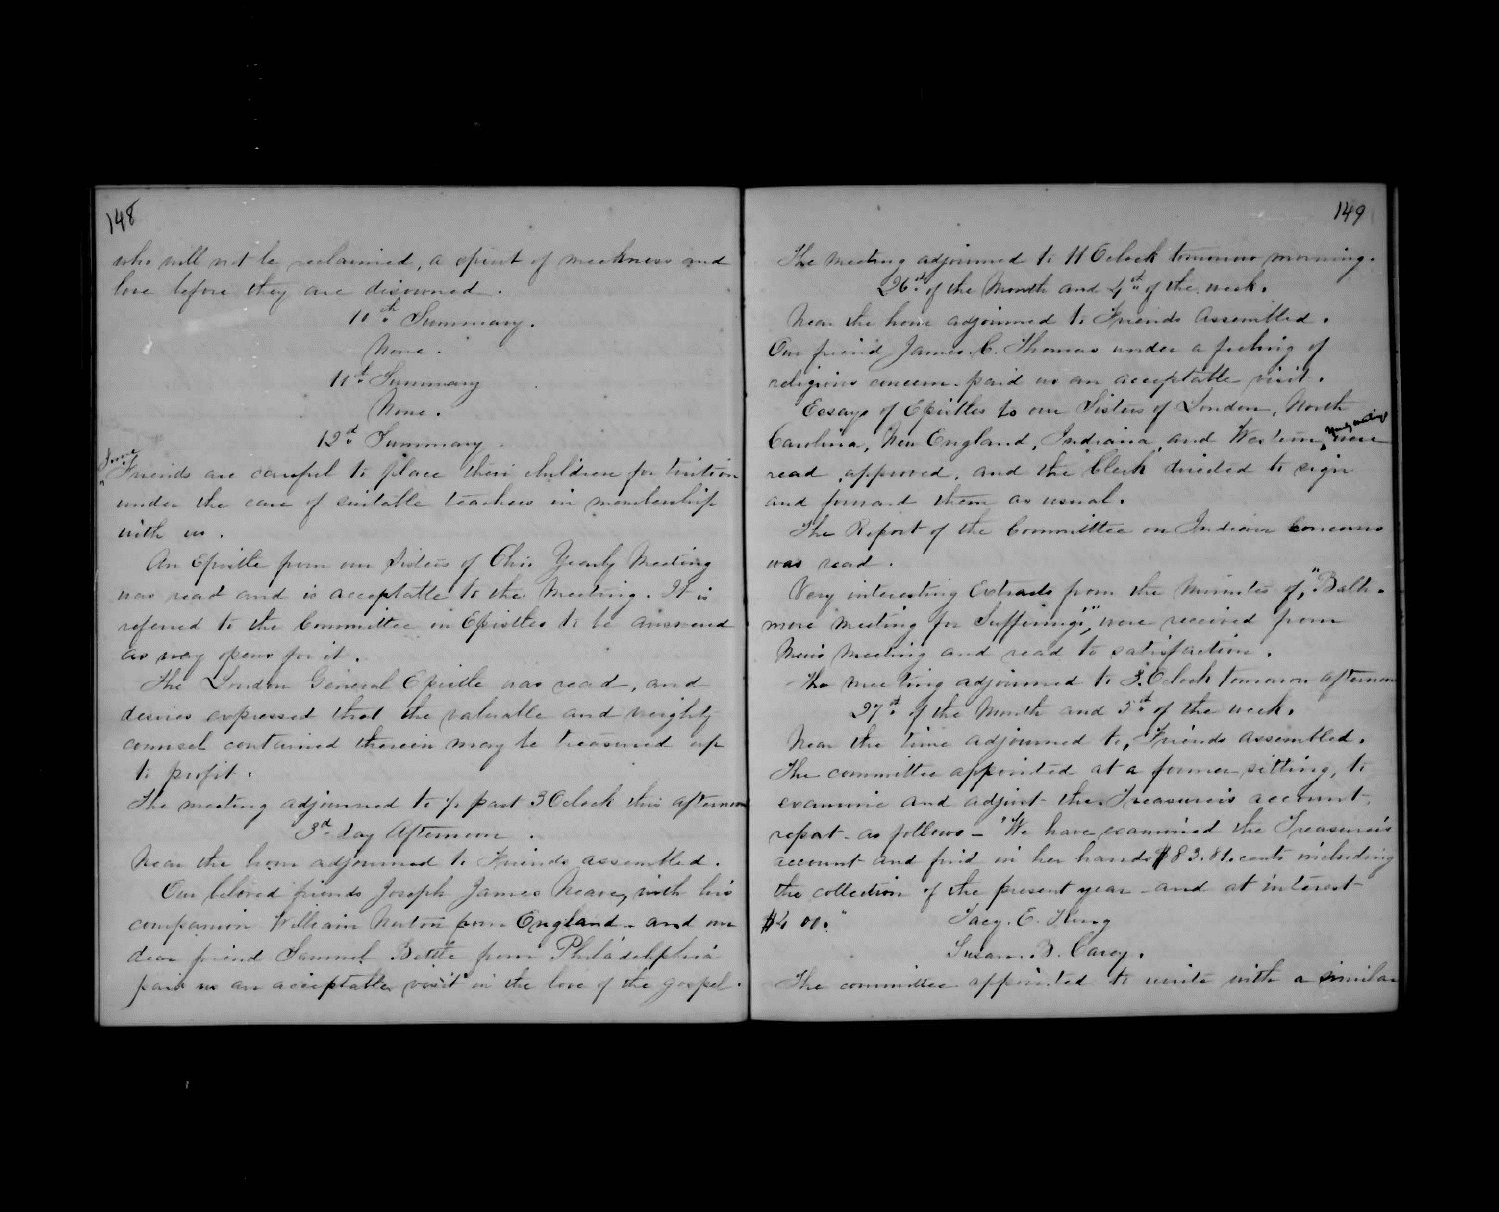 148
who will not be reclaimed, a spirit of meekness and
love before they are disowned.
10th Summary.
None.
11th Summary
None.
12th Summary
Some
Friends are careful to place their children for tuition
under the care of suitable teachers in membership
with us.
An Epistle from our Sisters of Ohio Yearly Meeting
was read and is acceptable to the Meeting. It is
referred to the Committee on Epistles to be answered
as way opens for it.
The London General Epistle was read, and
desires expressed that the valuable and weighty
counsel contained therein may be treasured up
to profit.
The meeting adjourned to ½ past 3 Oclock this afternoon
3d day Afternoon.
Near the hour adjourned to Friends assembled.
Our beloved friends Joseph James Neave, with his
companion William Norton from England and our
dear friend Samuel Bettle from Philadelphia
paid us an acceptable visit in the love of the gospel.
149
The meeting adjourned to 11 Oclock tomorrow morning.
26th of the Month and 4th of the week.
Near the hour adjourned to Friends assembled.
Our friend James C. Thomas under a feeling of
religious concern paid us an acceptable visit.
Essays of Epistles to our Sisters of London, North
Carolina, New England, Indiana, and Western, were
read, approved, and the Clerk directed to sign
and forward them as usual.
The Report of the Committee on Indian Concerns
was read.
Very interesting Extracts from the Minutes of, "Balti-
more Meeting for Sufferings", were received from
Mens Meeting and read to satisfaction.
The meeting adjourned to 3. Oclock tomorrow afternoon
27th of the Month and 5th of the week.
Near the time adjourned to, Friends assembled.
The committee appointed at a former sitting, to
examine and adjust the Treasurers account,
report as follows – "We have examined the Treasurers
account and find in her hands $83.81 cents including
the collection of the present year and at interest
$4 00."
Tacy. E. King
Susan. B. Carey.
The committee appointed to unite with a similar